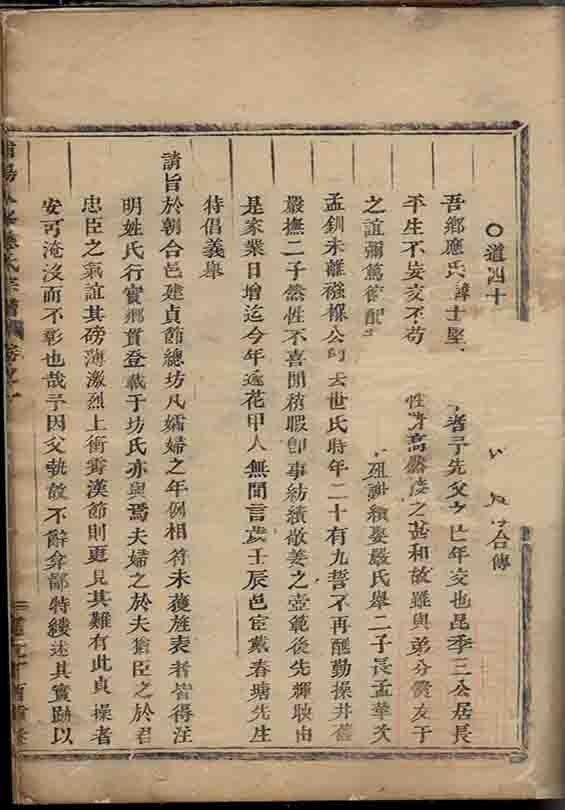 道四十
合傳
吾鄉應氏諱士堅 者予先父之 年交也昆季三公居長
平生不妄交不苟 性 高 之 和故雖與弟分 友于
之誼彌篤 配 娶嚴氏舉二子長孟華次
孟釧未離襁褓公 去世氏時年二十有九誓不再醮勤操井臼
嚴撫二子然性不喜閒稍暇即事紡績敬姜之壼範後先輝映由
是家業日增迄今年逾花甲人無間言歲壬辰邑宦戴春塘先生
特倡義舉
請旨於朝合邑建貞節總坊凡孀婦之年例相符未獲旌表者皆得注
明姓氏行實鄉貫登載于坊氏亦與焉夫婦之於夫猶臣之於君
忠臣之氣誼其磅薄激烈上衝霄漢節則更見其難有此貞操者
安可淹沒而不彰也哉予因父執故不辭弇鄙特縷述其實跡以
氏宗譜